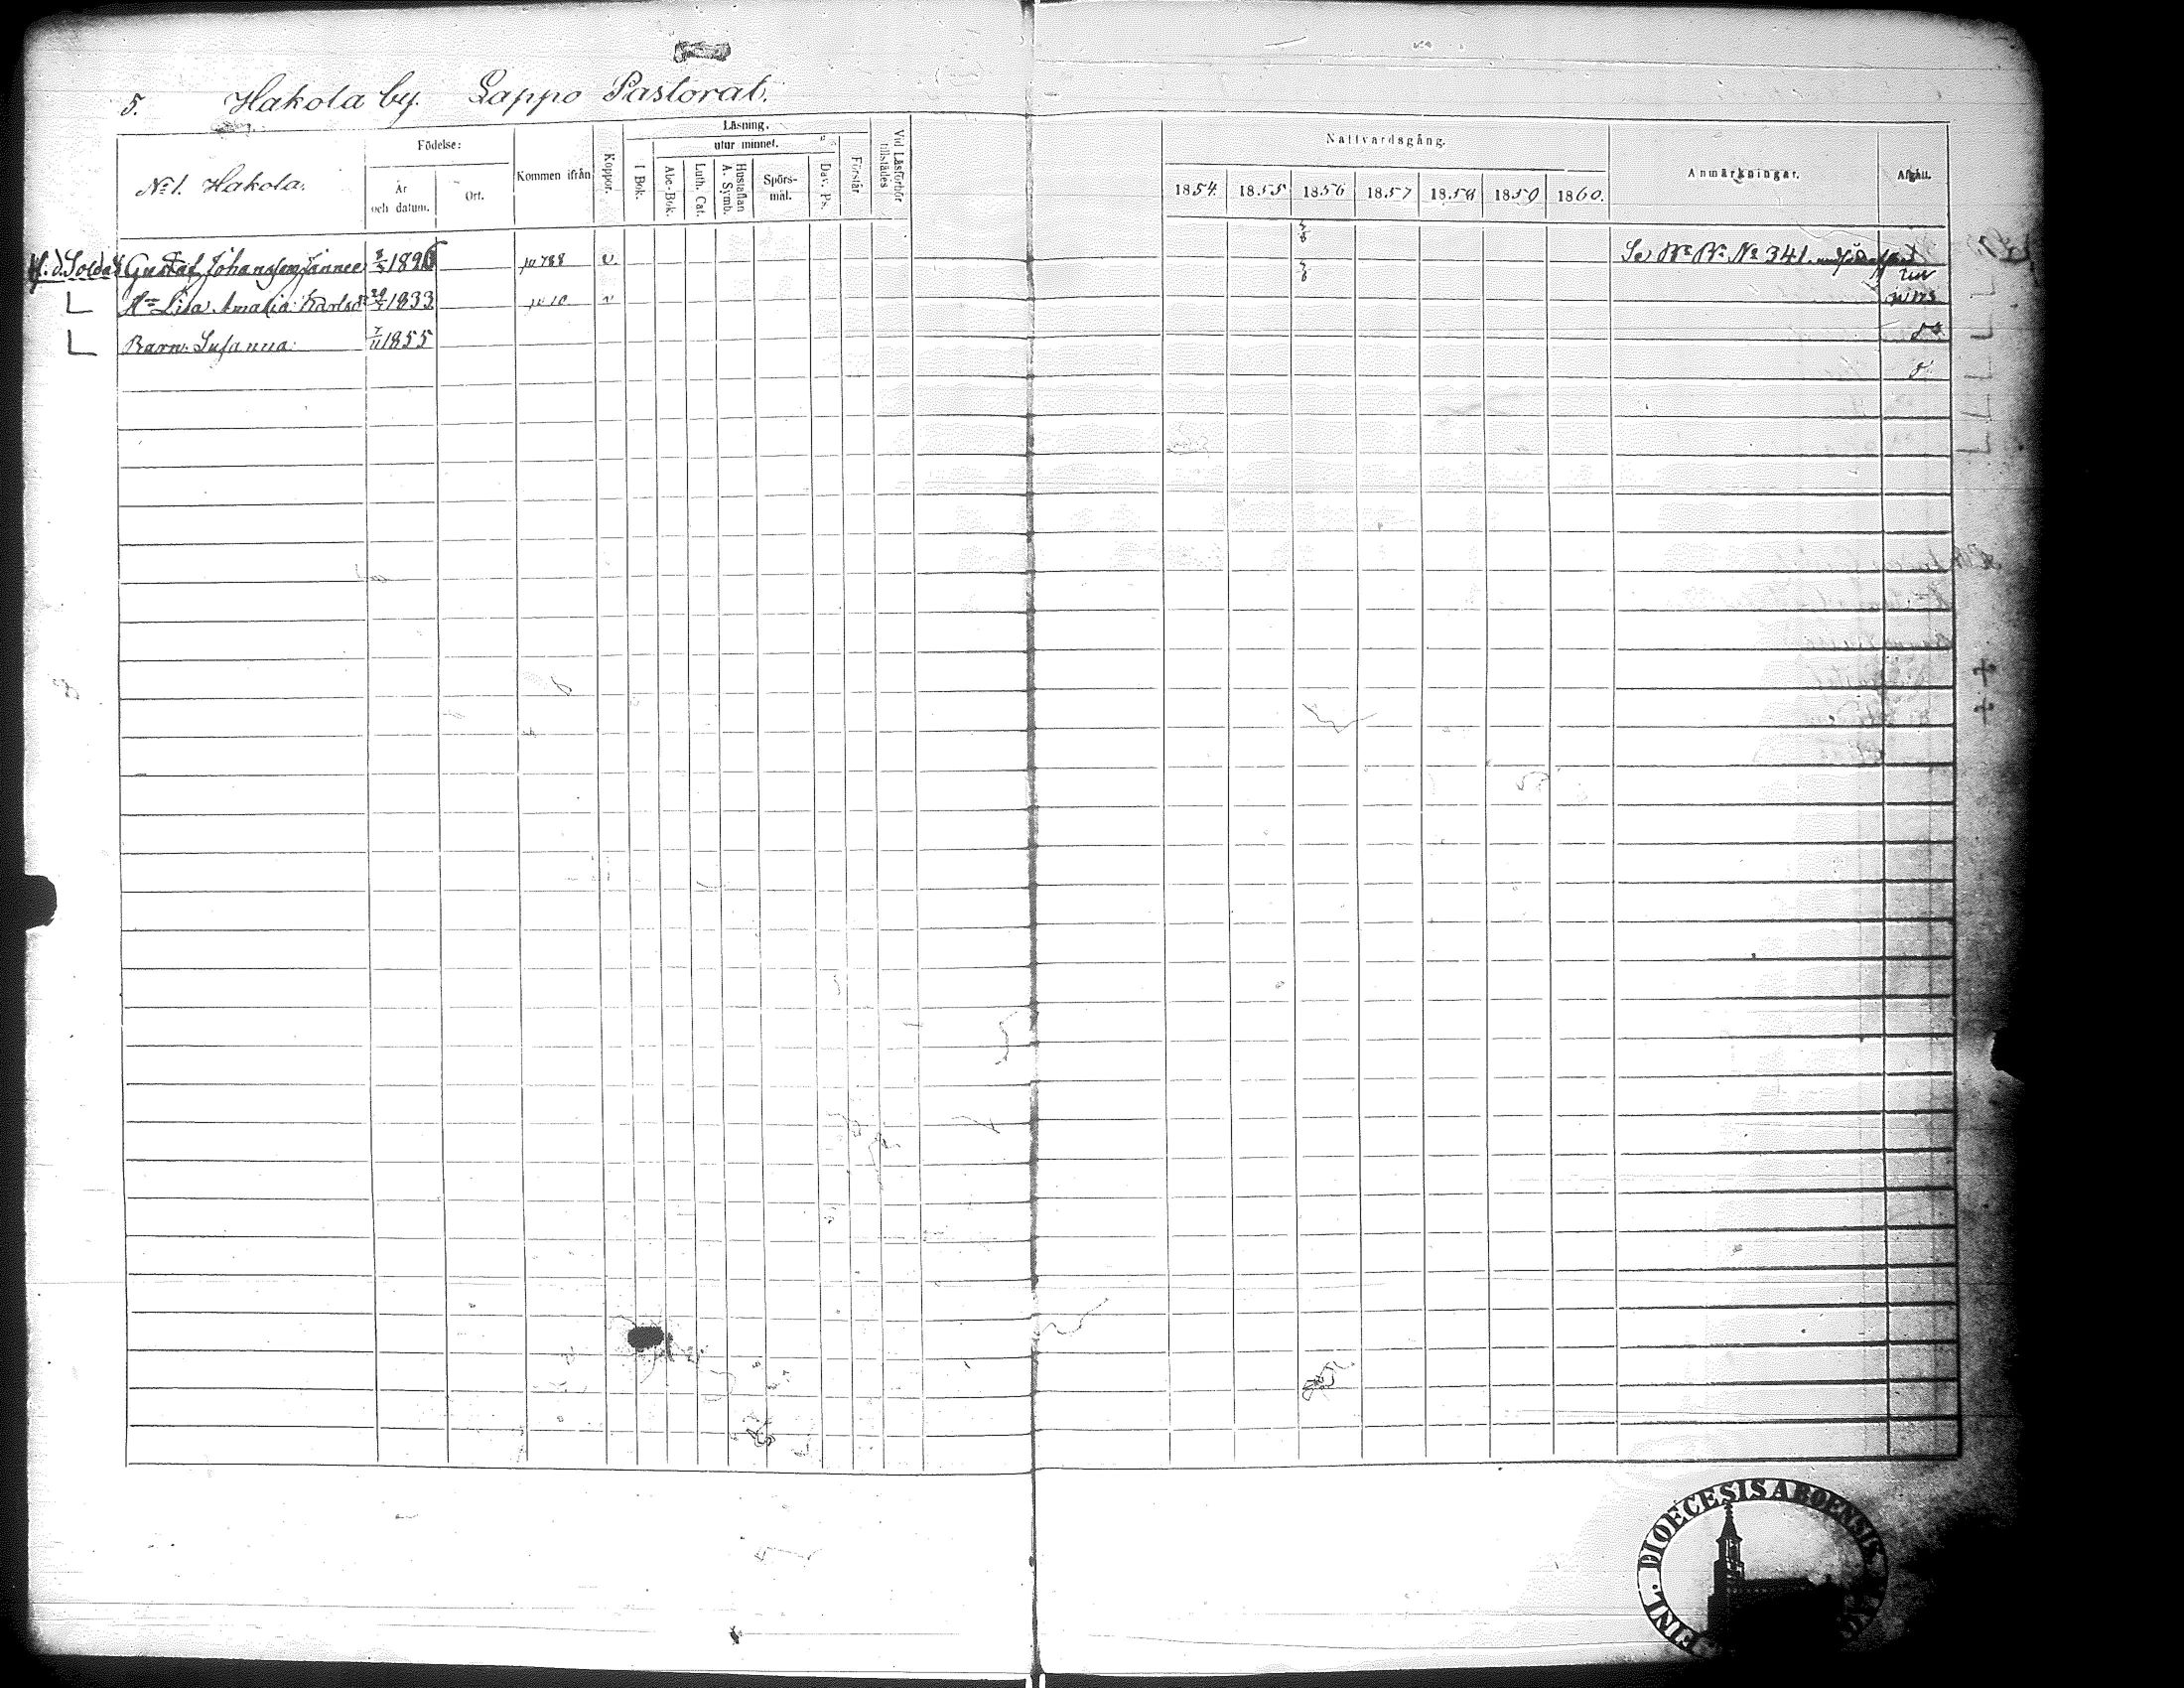 5. Hakola by. Lappo Pastorat.
No 1. Hakola.
Födelse:
År och datum.
Ort.
Kommen ifrån
Koppor.
Läsning.
utur minnet.
I Bok.
Abc-Bok.
Luth. Cat.
Hustaflan A. Symb.
Spörs-mål.
Dav. Ps.
Förstår
Vid Läsförhör tillstädes
Nattvardsgång.
1854. 1855 1856 1857 1858 1859 1860.
Anmärkningar.
Afgått.
f. d. Soldat Gustaf Johansson 1826 788 v. Se No 341.
Hu Lisa Amalia Karlsdr 1833 10 v
Barn. Susanna 7/11 1855
FINL. DIOECESIS ABOENSIS